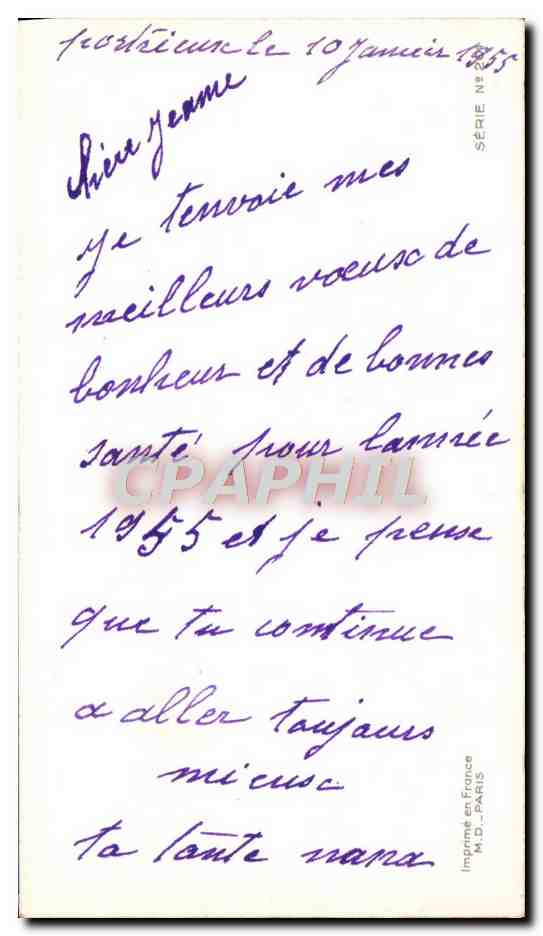 portrieux le 10 Janvier 1955
Chère Jeanne
Je tenvoie mes
meilleurs voeux de
bonheur et de bonnes
santé pour lannée
1955 et je pense
que tu continue
a aller toujours
mieux
ta tante nana
CPAPHIL
SÉRIE Nº
Imprimé en France
M.D._PARIS